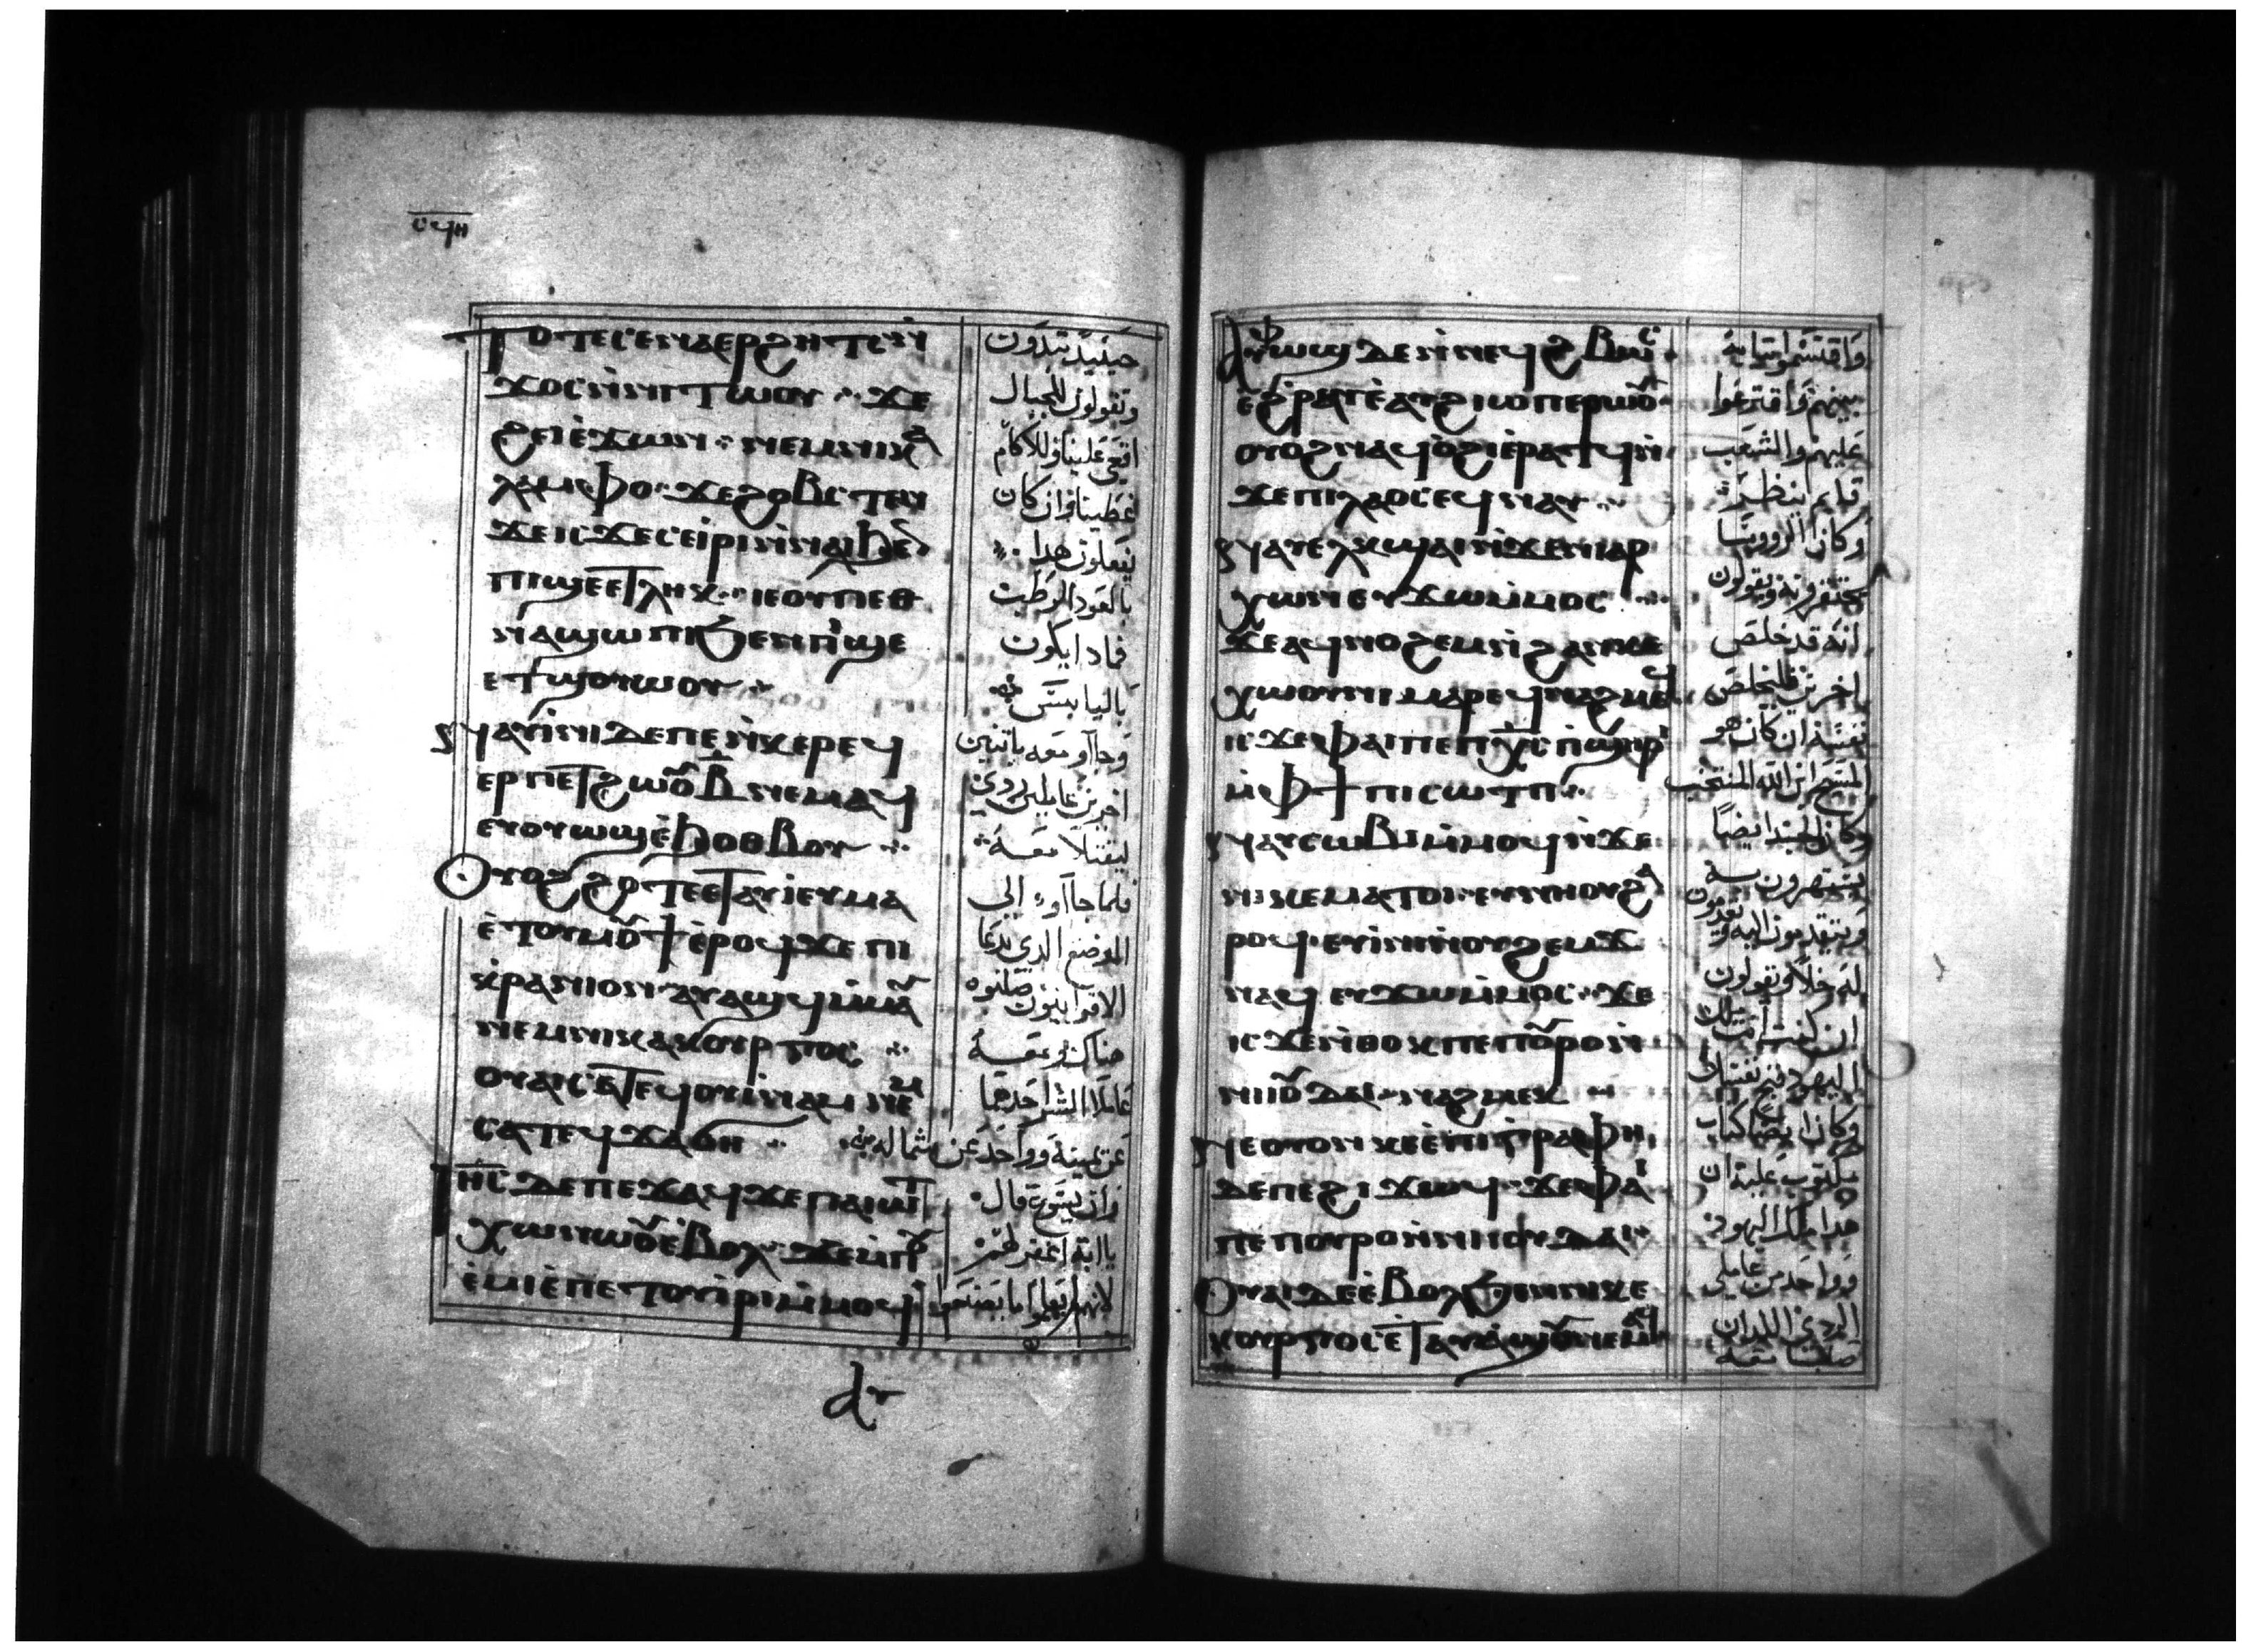 ⲥϥⲏ
ⲧⲟⲧⲉⲥⲉⲛⲁⲉⲣϩⲏⲧⲥⲛ̀
ϫⲟⲥⲛ̀ⲛⲓⲧⲱⲟⲩ ϫⲉ
ϩⲉⲓⲉ̀ϫⲱⲛ ⲛⲉⲙⲛⲓⲕⲁ
ⲗⲁⲙⲫⲟ ϫⲉϩⲟⲃⲥⲧⲉⲛ
ϫⲉⲓⲥϫⲉⲥⲉⲓ̀ⲣⲓⲛ̀ⲛⲁⲓϧⲉⲛ
ⲡⲓϣⲉⲉⲧⲗⲏⲕ ⲓⲉⲟⲩⲡⲉⲑ
ⲛⲁϣⲱⲡⲓϧⲉⲛⲡⲓϣⲉ
ⲉⲧϣⲟⲩⲱⲟⲩ
ⲁⲩⲓ̀ⲛⲓⲇⲉⲡⲉⲛ̀ⲕⲉⲣⲉϥ
ⲉⲣⲡⲉⲧϩⲱⲟⲩ ⲃ̄ ⲛⲉⲙⲁϥ
ⲉⲩⲟⲩⲱϣⲉ̀ϧⲟⲑⲃⲟⲩ
ⲟⲩⲟϩϩⲟⲧⲉⲉⲧⲁⲩⲓ̀ⲉⲩⲙⲁ
ⲉ̀ⲧⲟⲩⲙⲟⲩϯⲉ̀ⲣⲟϥϫⲉⲡⲓ
ⲕ̀ⲣⲁⲛⲓⲟⲛ ⲁⲩⲁϣϥⲙ̀ⲙⲁⲩ
ⲛⲉⲙⲛⲓⲕⲁⲕⲟⲩⲣⲅⲟⲥ
ⲟⲩⲁⲓⲥⲁⲧⲉϥⲟⲩⲓ̀ⲛⲁⲙ ⲛⲉⲙ
ⲥⲁⲧⲉϥϫⲁϭⲏ
ⲓⲏⲥ ⲇⲉⲡⲉϫⲁϥϫⲉⲡⲁⲓⲱⲧ
ⲭⲱⲛⲱⲟⲩⲉ̀ⲃⲟⲗ ϫⲉⲙ̀ⲡⲟⲩ
ⲉ̀ⲙⲓⲉ̀ⲡⲉⲧⲟⲩⲓ̀ⲣⲓⲙ̀ⲙⲟϥ
حينيذ تبدون
وتقولون للجبال
اقعي علينا وللاكام
غطينا وان كان
يفعلون هدا
بالعود الرطب
فمادا يكون
باليابس
وجاآو معه باتنين
اخرين عاملين ردي
ليقتلا معه
فلما جاآوا الى
الموضع الدي يدعا
الاقرانيون صلبوه
هناك ومعه
عاملا الشر احدهما
عن يمينه وواحد عن شماله
وان يسوع قال
يا ابة اغفر لهم
لانهم لم يعلموا ما يصنعوا
ⲁⲩ
ⲁⲩⲫⲱϣ ⲇⲉⲛ̀ⲛⲉϥϩⲃⲱⲥ
ⲉ̀ϩⲣⲁⲩⲉ̀ⲁⲩϩⲓⲱⲡⲉⲣⲱⲟⲩ
ⲟⲩⲟϩⲛⲁϥⲟ̀ϩⲓⲉ̀ⲣⲁⲧϥⲛ̀
ϫⲉⲡⲓⲗⲁⲟⲥⲉϥⲛⲁⲩ
ⲛⲁⲩⲉⲗⲕϣⲁⲓⲛ̀ϫⲉⲛⲓⲁⲣ
ⲭⲱⲛ ⲉⲩϫⲱⲙ̀ⲙⲟⲥ
ϫⲉⲁϥⲛⲟϩⲉⲙⲛ̀ϩⲁⲛⲕⲉ
ⲭⲱⲟⲩⲛⲓ ⲙⲁⲣⲉϥⲛⲁϩⲙⲉϥ
ⲓⲥϫⲉⲫⲁⲓⲡⲉⲡⲭ̅ⲥ̅ ⲡ̀ϣⲏⲣⲓ
ⲙ̀ⲫϯⲡⲓⲥⲱⲧⲡ
ⲛⲁⲩⲥⲱⲃⲓⲙ̀ⲙⲟϥⲛ̀ϫⲉ
ⲛⲓⲕⲉⲙⲁⲧⲟⲓ ⲉⲩⲛⲏⲟⲩϩⲁ
ⲣⲟϥ ⲉⲩⲓ̀ⲛⲓⲛ̀ⲟⲩϩⲉⲙϫ
ⲛⲁϥ ⲉⲩϫⲱⲙ̀ⲙⲟⲥ ϫⲉ
ⲓⲥϫⲉⲛ̀ⲑⲟⲕⲡⲉⲡⲟⲩⲣⲟⲛ̀
ⲛⲓⲓⲟⲩⲇⲁⲓ ⲛⲁϩⲙⲉⲕ
ⲛⲉⲟⲩⲟⲛ ⲕⲉⲉ̀ⲡⲓⲅ̀ⲣⲁⲫⲏ
ⲇⲉⲡⲉϩⲓϫⲱϥ ϫⲉⲫⲁⲓ
ⲡⲉⲡⲟⲩⲣⲟⲛ̀ⲛⲓⲓⲟⲩⲇⲁⲓ
ⲟⲩⲁⲓⲇⲉⲉ̀ⲃⲟⲗϧⲉⲛⲛⲓⲕⲉ
ⲕⲟⲩⲣⲅⲟⲥⲉⲧⲁⲩⲁ̀ϣⲟⲩⲛⲉⲙⲁϥ
واقتسموا تيابه
بينهم واقترعوا
عليهم والشعب
قايم ينظر
وكان الروسا
يقولون
انه قد خلص
اخرين فليخلص
نفسه ان كان هو
المسيح ابن الله المنتخب
وكان الجند ايضا
يستهزون به
ويتقدمون اليه ويقدمون
له خلا ويقولون
ان كنت انت ملك
اليهود فنج نفسك
وكان ايضا كتاب
مكتوب عليه ان
هدا ملك اليهود
وواحد من عاملي
الردي اللدان
صلبا معه